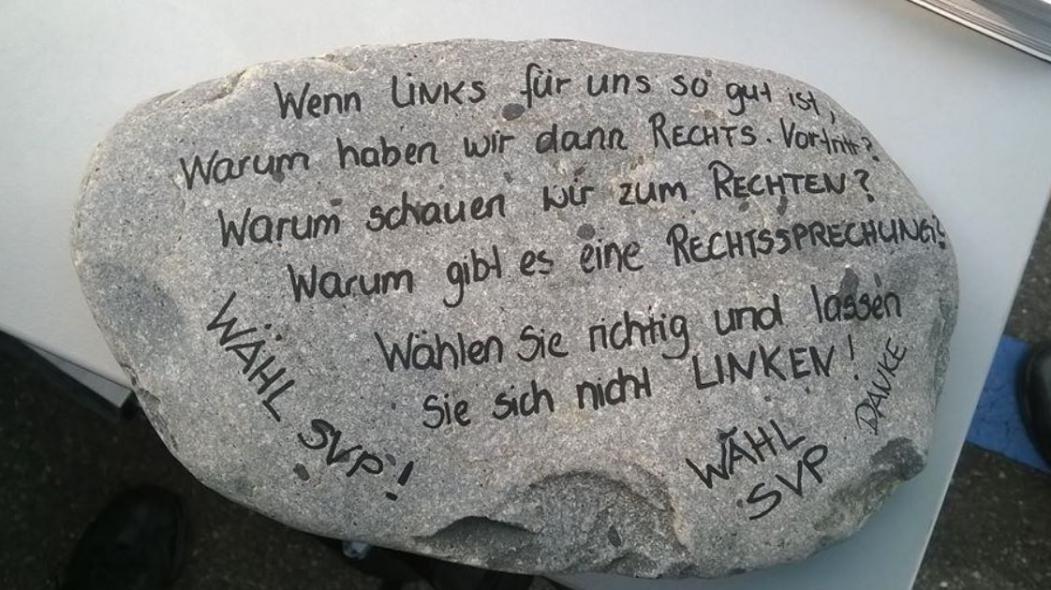 Wenn LINKS für uns so gut ist,
Warum haben wir dann RECHTS. Vortritt?
Warum schauen wir zum RECHTEN?
Warum gibt es eine RECHTSSPRECHUNG?
Wählen Sie richtig und lassen
Sie sich nicht LINKEN!
DANKE
WÄHL SVP!
WÄHL
SVP